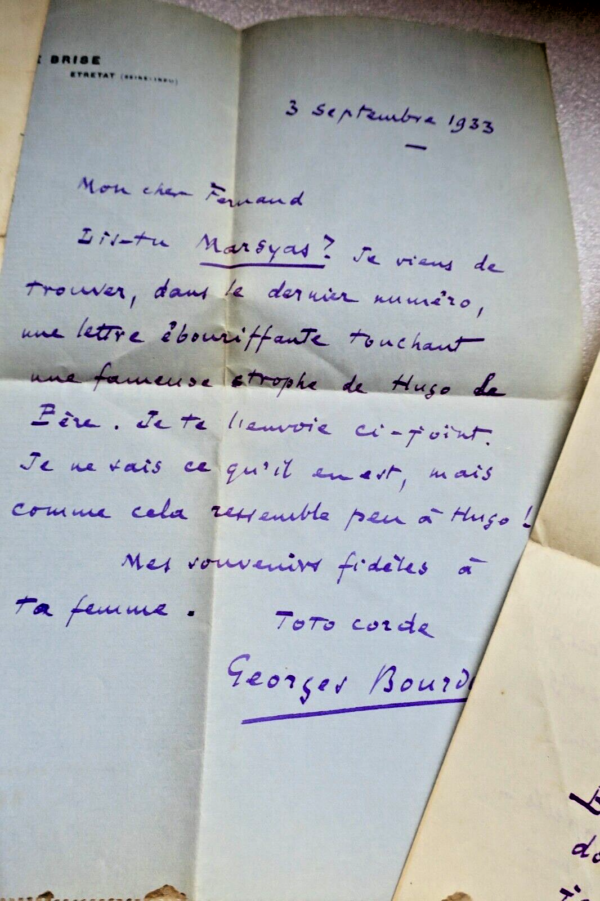 BRISE
ETRETAT (SEINE-INF.)
3 septembre 1933
Mon cher Fernand
Lis-tu Marsyas? Je viens de
trouver, dans le dernier numéro,
une lettre ébouriffante touchant
une fameuse strophe de Hugo le
Père. Je te l'envoie ci-joint.
Je ne sais ce qu'il en est, mais
comme cela ressemble peu à Hugo!
Mes souvenirs fidèles à
ta femme.
Toto corde
Georges Bourd
do